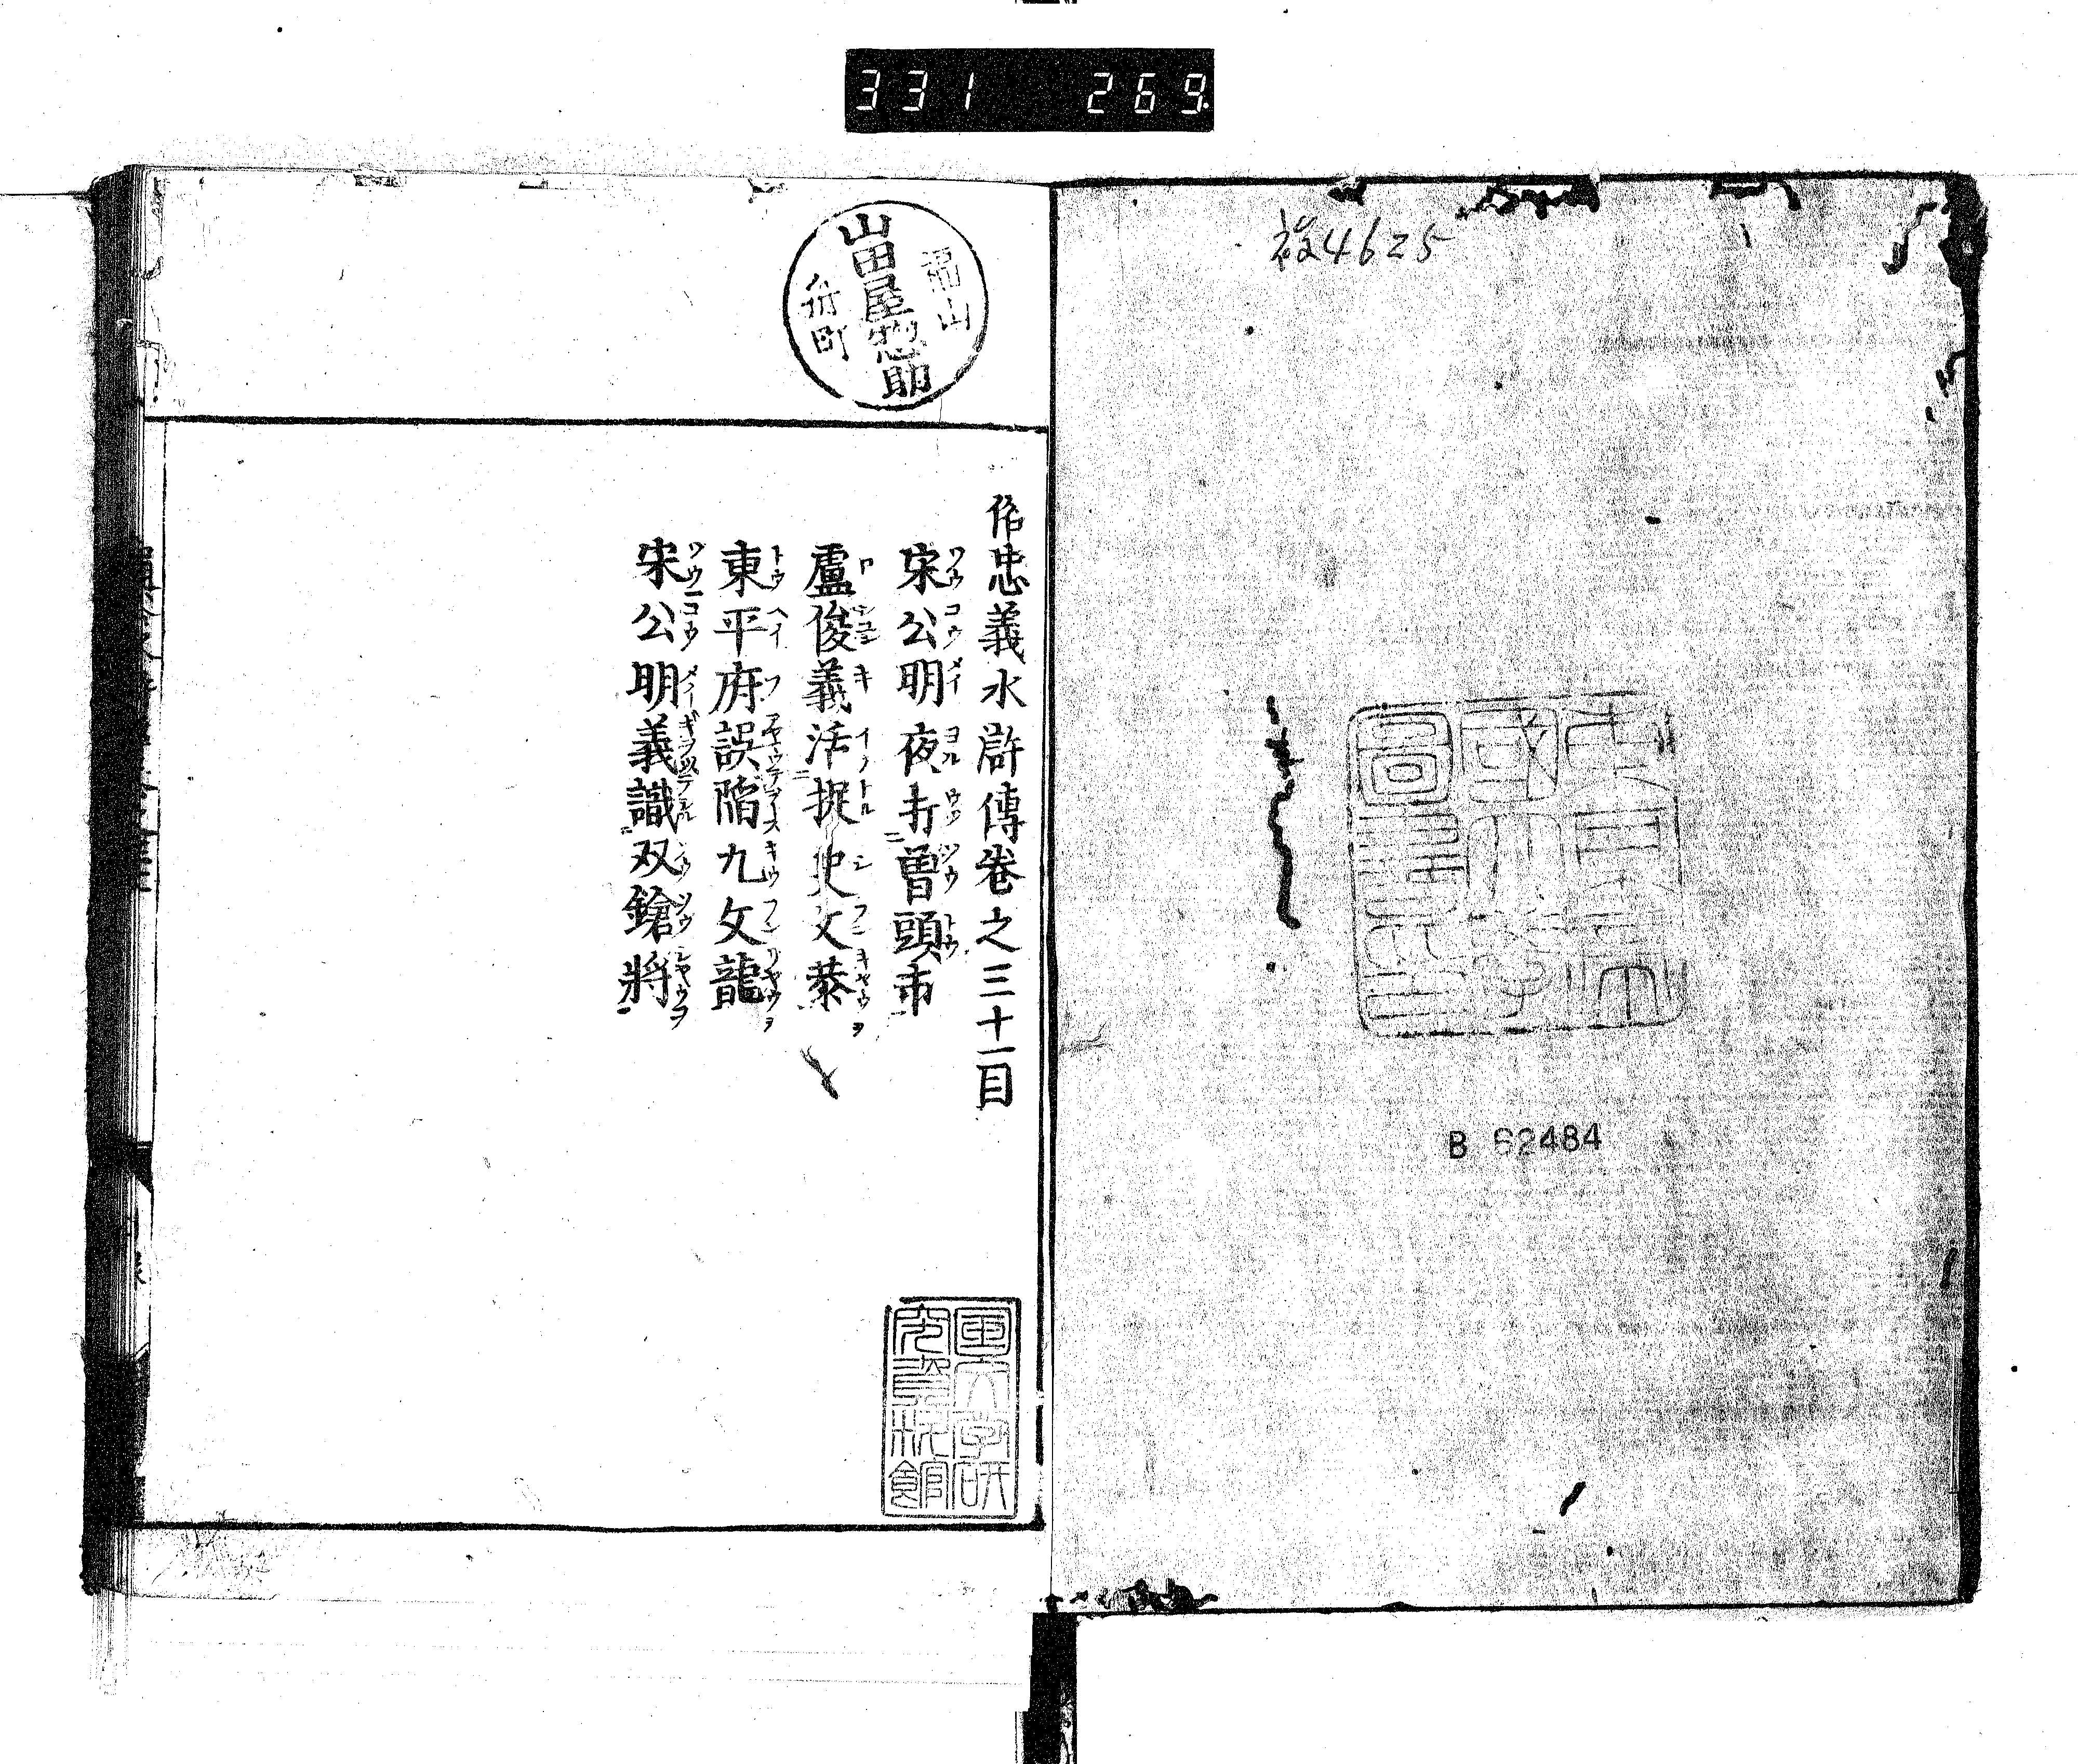 331 269
設4625
東京帝國大學圖書印
B 62484
福山
山田屋惣助
舟町
俗忠義水滸傳卷之三十一目
宋公明夜打曽頭市
盧俊義活捉史文恭
東平府誤陷九文龍
宋公明義識双鎗將
国文学研
究資料館